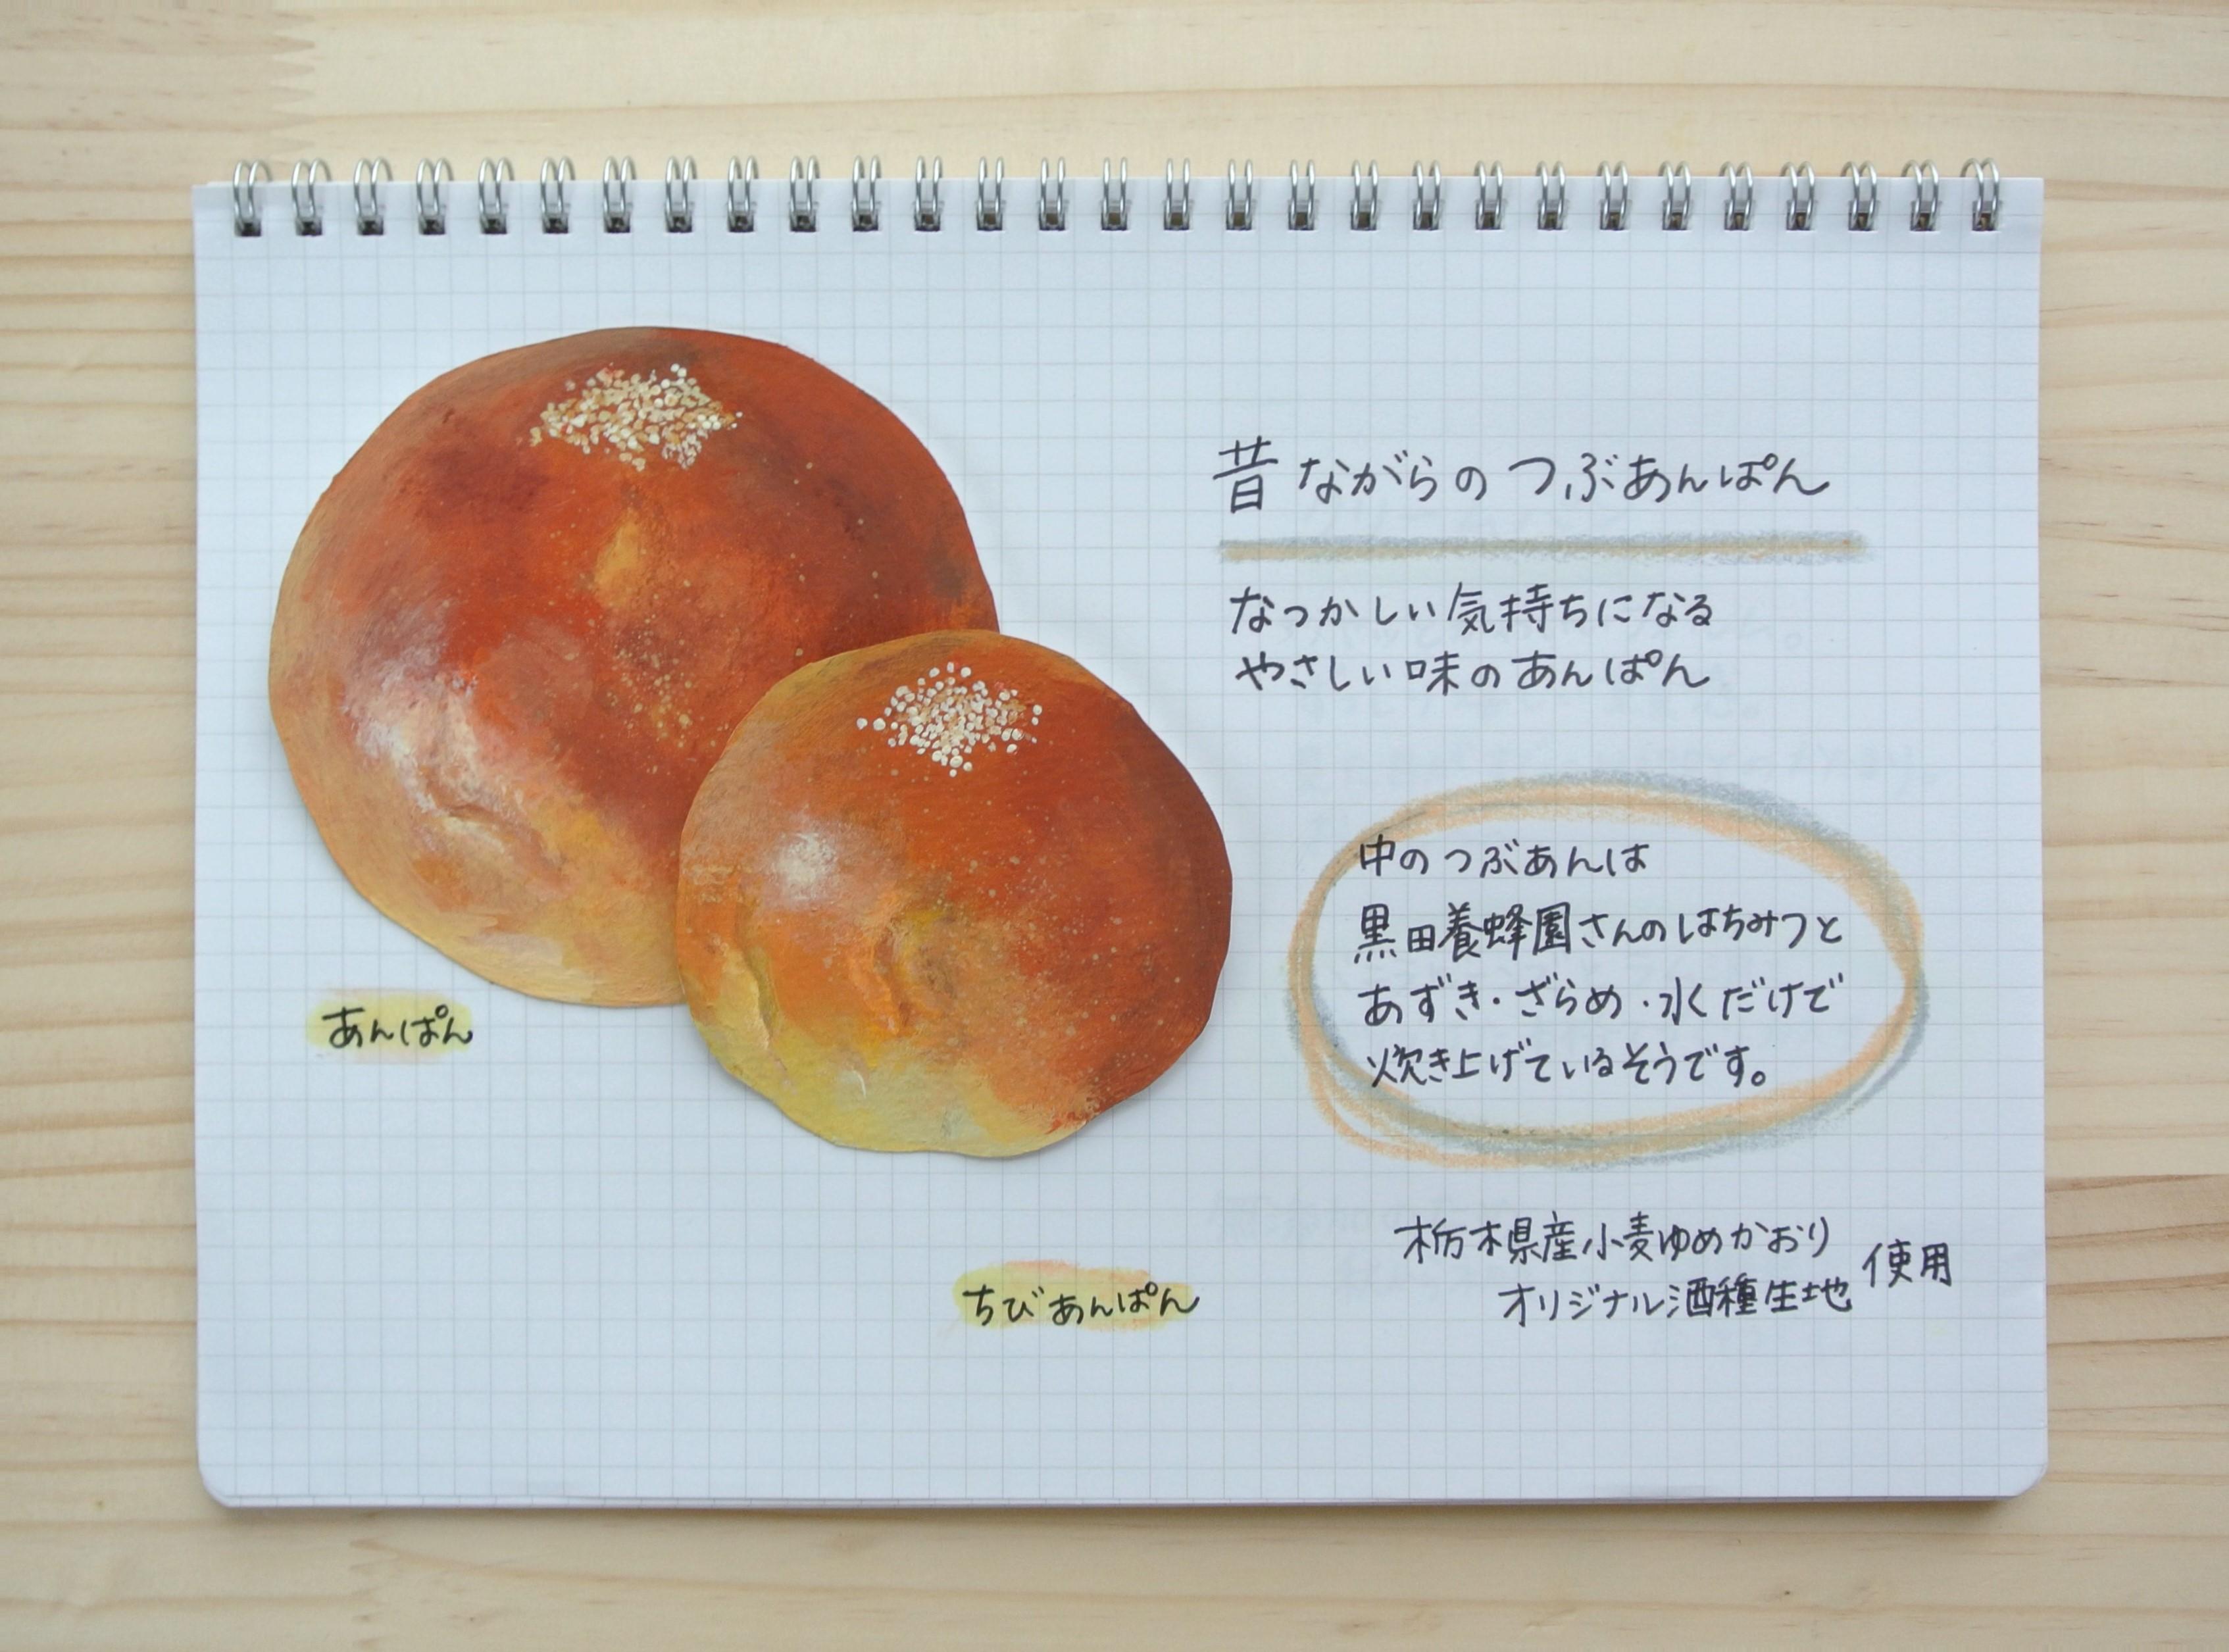 昔ながらのつぶあんぱん
なつかしい気持ちになる
やさしい味のあんぱん
中のつぶあんは
黒田養蜂園さんのはちみつと
あずき・ざらめ・水だけで
炊き上げているそうです。
あんぱん
ちびあんぱん
栃木県産小麦ゆめかおり
オリジナル酒種生地
使用